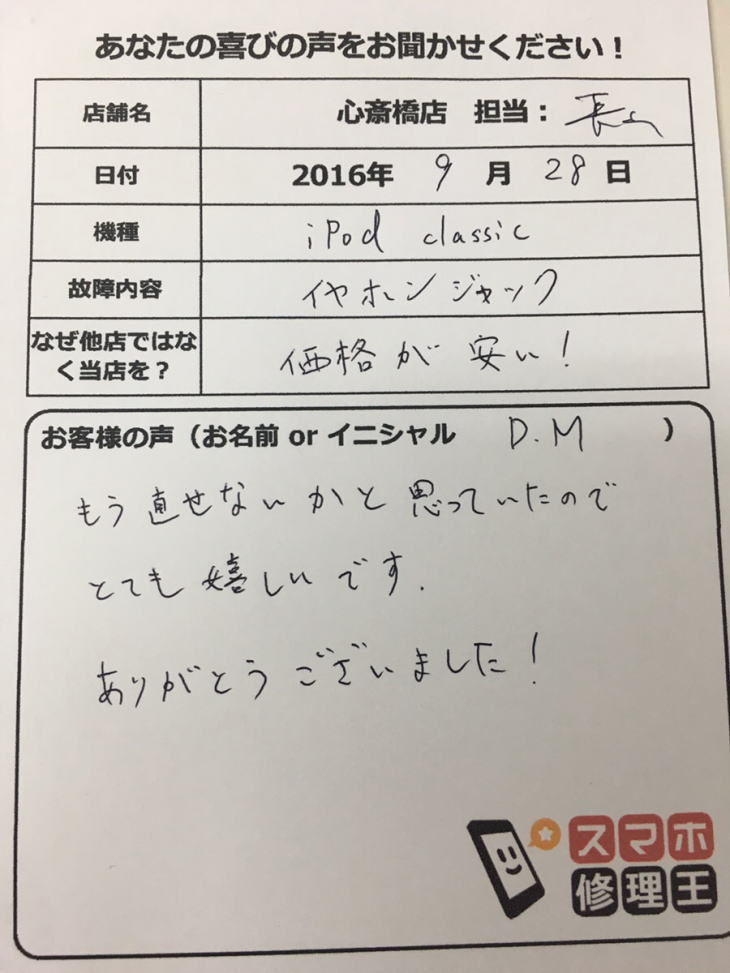 あなたの喜びの声をお聞かせください！
店舗名 心斎橋店 担当：
日付 2016年 9 月 28 日
機種 iPod classic
故障内容 イヤホンジャック
なぜ他店ではな
く当店を？ 価格が安い！
お客様の声（お名前 or イニシャル D.M ）
もう直せないかと思っていたので
とても嬉しいです.
ありがとうございました！
スマホ
修理王